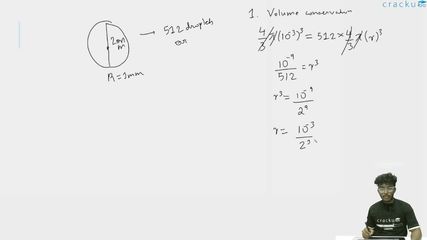 cracku
2mm
m
→ 512 droplets
or
R = 1mm
1. Volume conservation
4/3 π (10⁻³)³ = 512 × 4/3 π (r)³
10⁻⁹/512 = r³
r³ = 10⁻⁹/2⁹
r = 10⁻³/2³
cracku